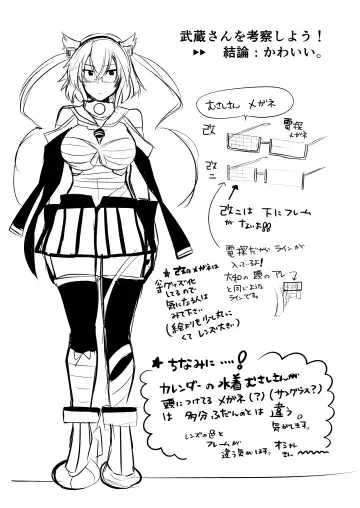 武蔵さんを考察しよう!
▶▶ 結論:かわいい。
むさしさん メガネ
改
電探
メガネ
改二
改二は 下にフレーム
がないよ!!
電探だからラインが
入っているよ!
大和の 頭のアレ
と同じような
ラインです。
★改のメガネは
公式グッズ化
してるので
気になる人は
みて下さい
(絵よりも少し丸っこ
くてレンズ大きい)
★ ちなみに ....!
カレンダーの水着むさしさんが
頭につけてるメガネ(?)(サングラス?)
は 多分ふだんのとは 違う
気がします。
レンズの色と
フレームが
違う気がします。
オシャレ
さん